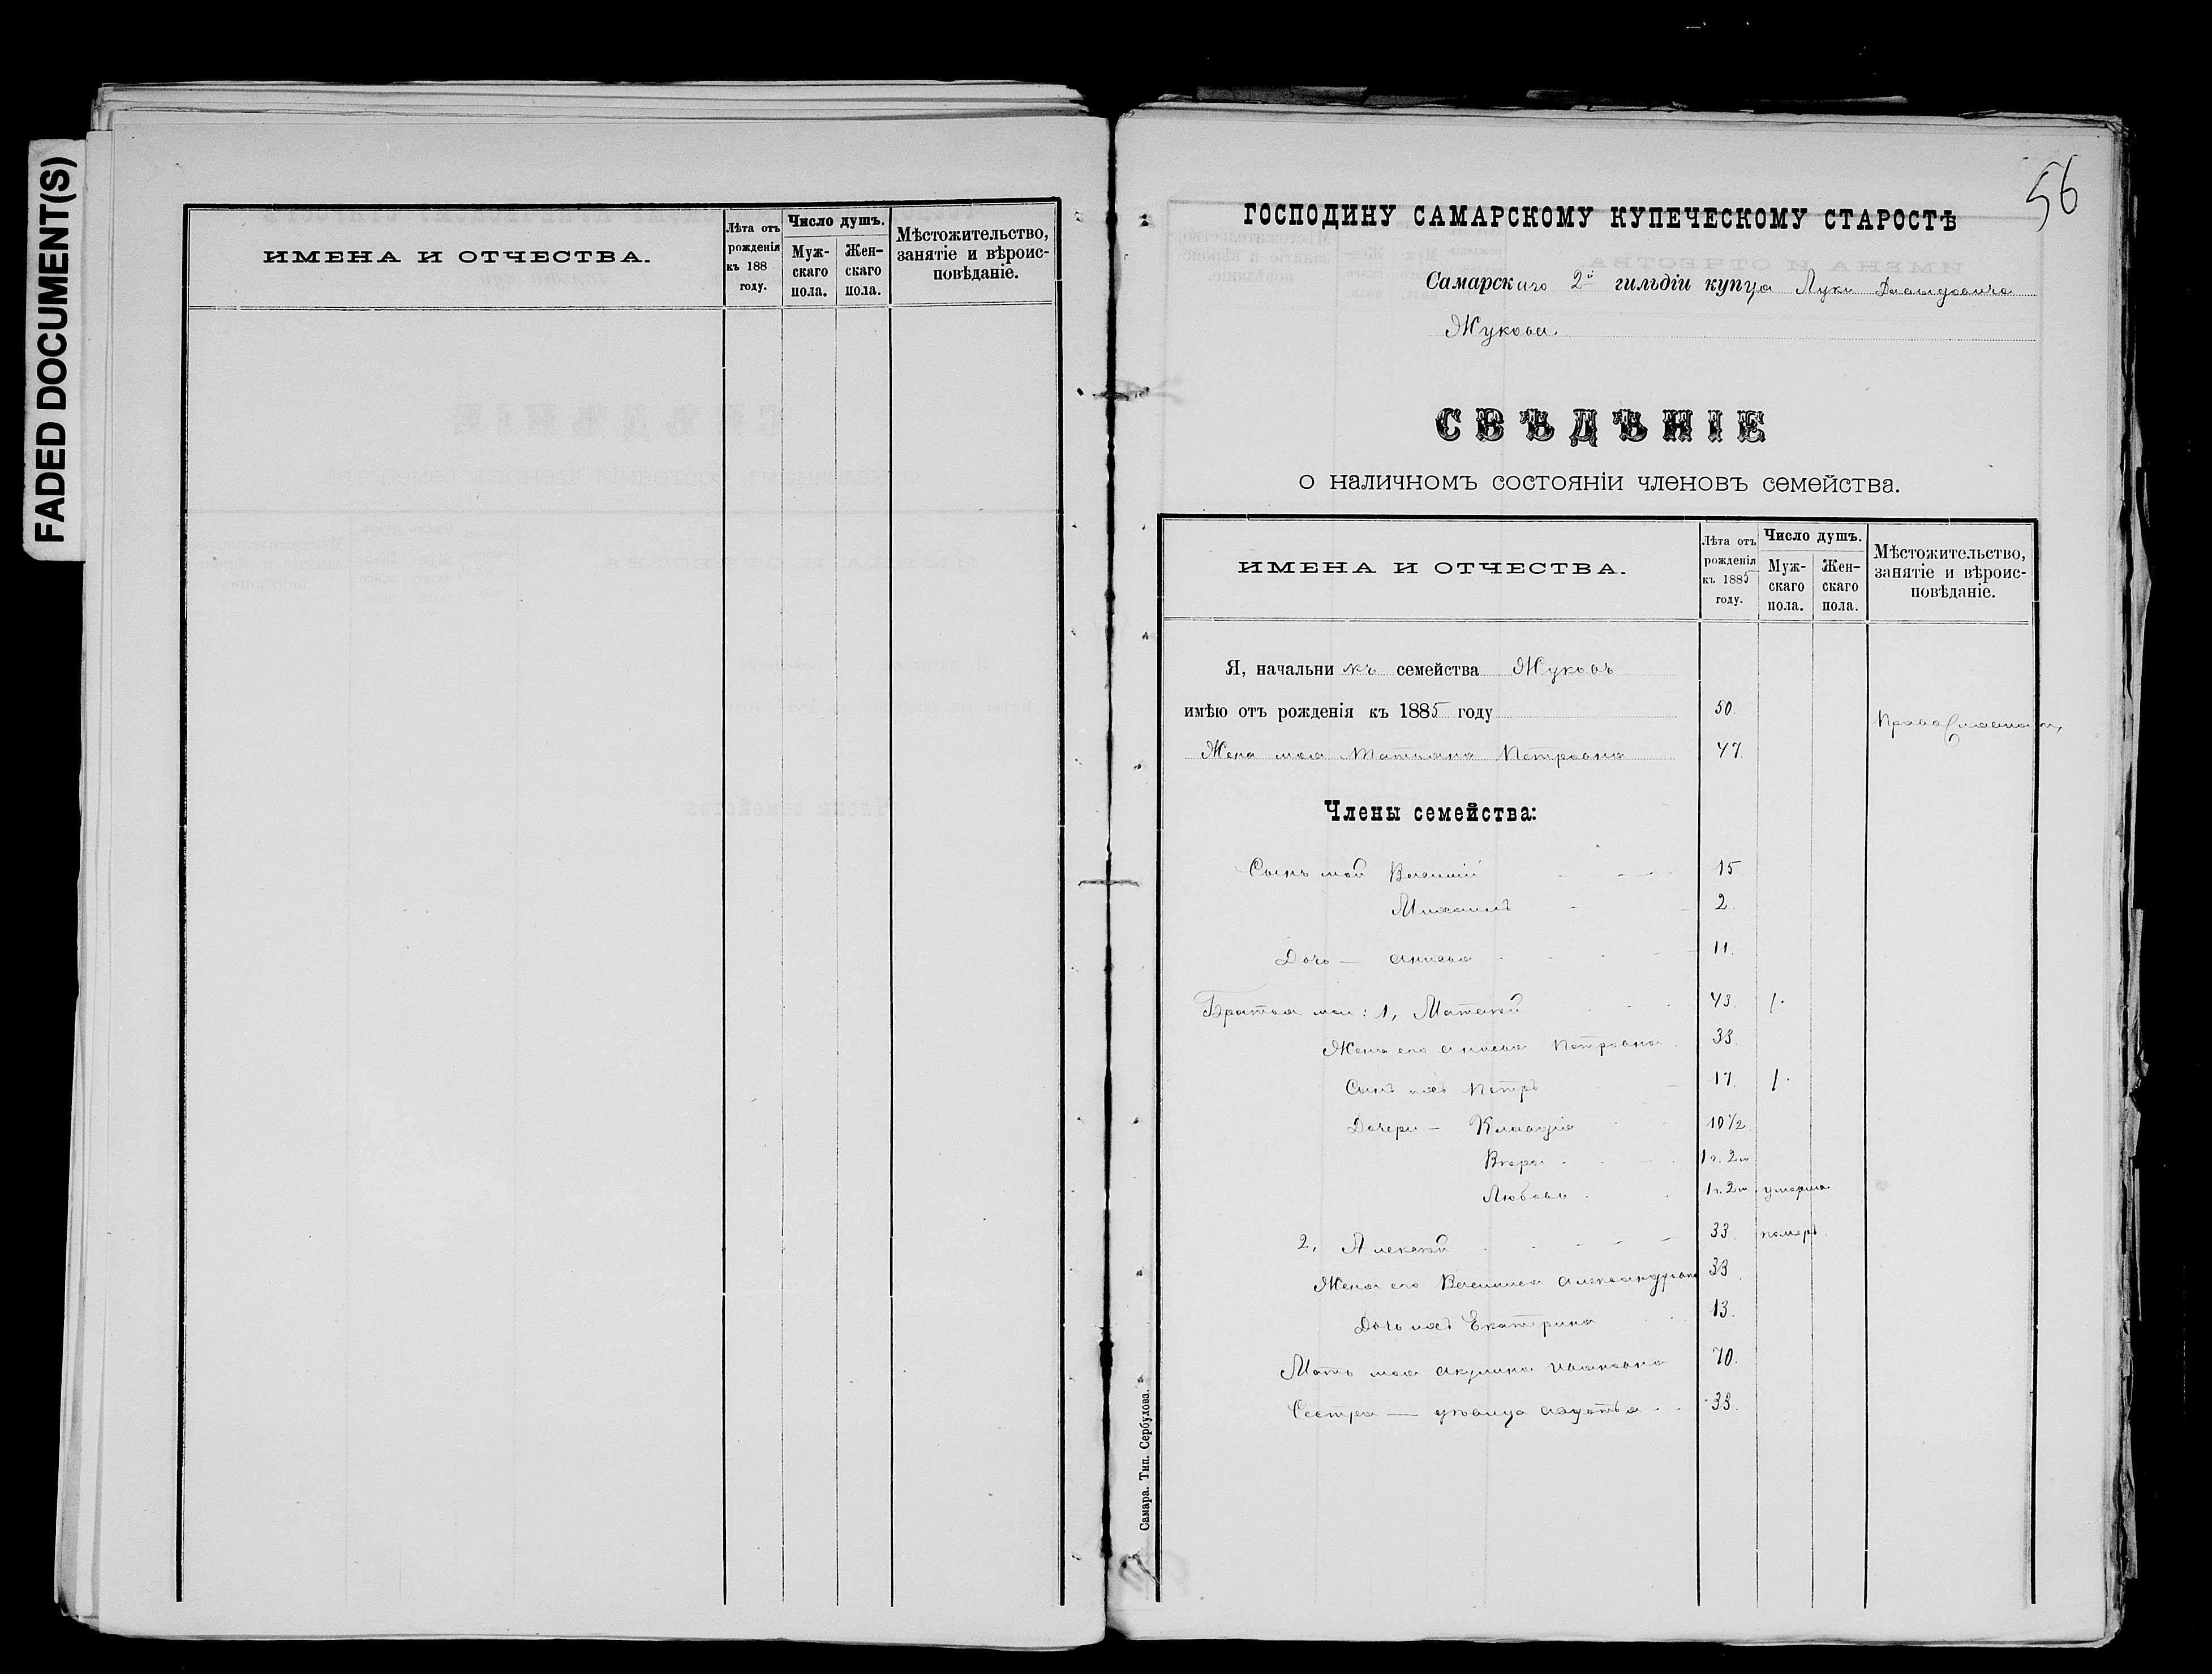 FADED DOCUMENT(S)
ИМЕНА И ОТЧЕСТВА.
Лѣта отъ
рожденія
къ 188
году.
Число душъ.
Муж-
скаго
пола.
Жен-
скаго
пола.
Мѣстожительство,
занятіе и вѣроис-
повѣданіе.
56
ГОСПОДИНУ САМАРСКОМУ КУПЕЧЕСКОМУ СТАРОСТѢ
Самарскаго 2й гильдіи купца Луки Давыдовича
Жукова.
СВѢДѢНІЕ
о наличномъ состояніи членовъ семейства.
ИМЕНА И ОТЧЕСТВА.
Лѣта отъ
рожденія
къ 1885
году.
Число душъ.
Муж-
скаго
пола.
Жен-
скаго
пола.
Мѣстожительство,
занятіе и вѣроис-
повѣданіе.
Я, начальникъ семейства Жуковъ
имѣю отъ рожденія къ 1885 году 50.
Жена моя Татьяна Петровна 47.
Члены семейства:
Сынъ мой Василій 15
Михаилъ 2.
Дочь — Анисья 11.
Братья мои: 1, Матвѣй 43. 1.
Жена его Анисья Петровна 33.
Сынъ ихъ Петръ 17. 1.
Дочери — Клавдія 10 1/2
Вѣра 1 г. 2 м
Любовь 1 г. 2 м умерла
2, Алексѣй 33. померъ
Жена его Василиса Александровна 33
Дочь ихъ Екатерина 13.
Мать моя Акулина Ивановна 70.
Сестра — дѣвица Авдотья 33.
Самара. Тип. Сербулова.